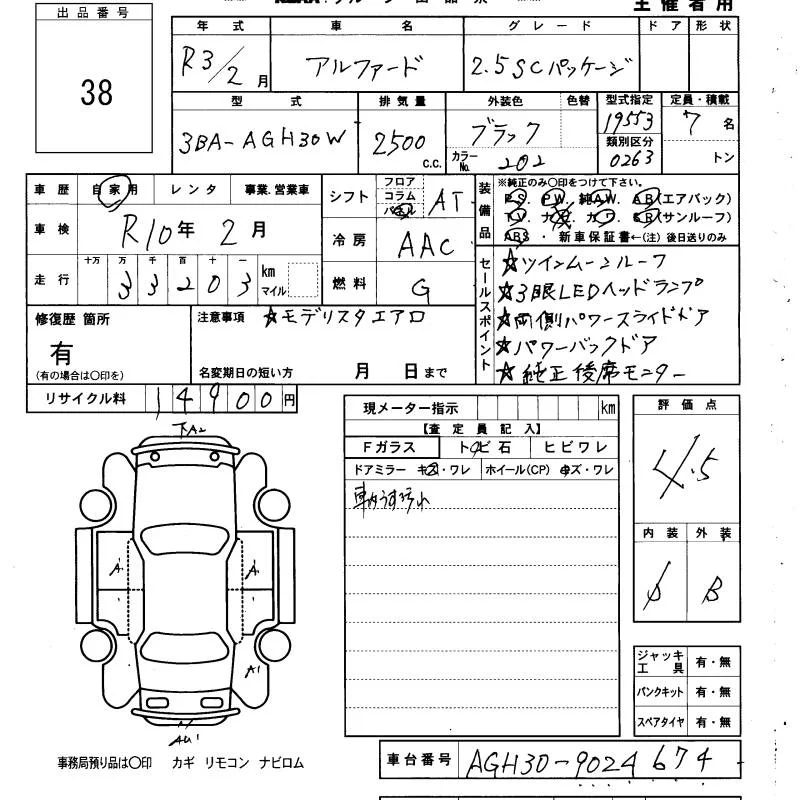 出品番号
38
主催者用
年式 車名 グレード ドア 形状
R3/2月 アルファード 2.5SCパッケージ
型式 排気量 外装色 色替 型式指定 定員・積載
3BA-AGH30W 2500 c.c. ブラック 19553 7名
カラーNo. 202 類別区分 0263 トン
車歴 自家用 レンタ 事業.営業車
車検 R10年2月
走行 十万 万 千 百 十 一 km マイル
33203
シフト フロア コラム パネル AT
冷房 AAC
燃料 G
装備品 ※純正のみ〇印をつけて下さい。
P.S. P.W. 純A.W. A.B(エアバック)
T.V. ナビ カワ S.R(サンルーフ)
ABS・新車保証書←(注)後日送りのみ
セールスポイント
☆ツインムーンルーフ
☆3眼LEDヘッドランプ
☆両側パワースライドドア
☆パワーバックドア
☆純正後席モニター
修復歴 箇所
有
(有の場合は〇印を)
注意事項 ☆モデリスタエアロ
名変期日の短い方 月 日まで
リサイクル料 14900円
現メーター指示 km
【査定員記入】
Fガラス トビ石 ヒビワレ
ドアミラー キズ・ワレ ホイール(CP) キズ・ワレ
車内うす汚れ
評価点
4.5
内装 外装
B
下A2
A'
A'
A'
AU'
ジャッキ工具 有・無
パンクキット 有・無
スペアタイヤ 有・無
事務局預り品は〇印 カギ リモコン ナビロム
車台番号 AGH30-9024674